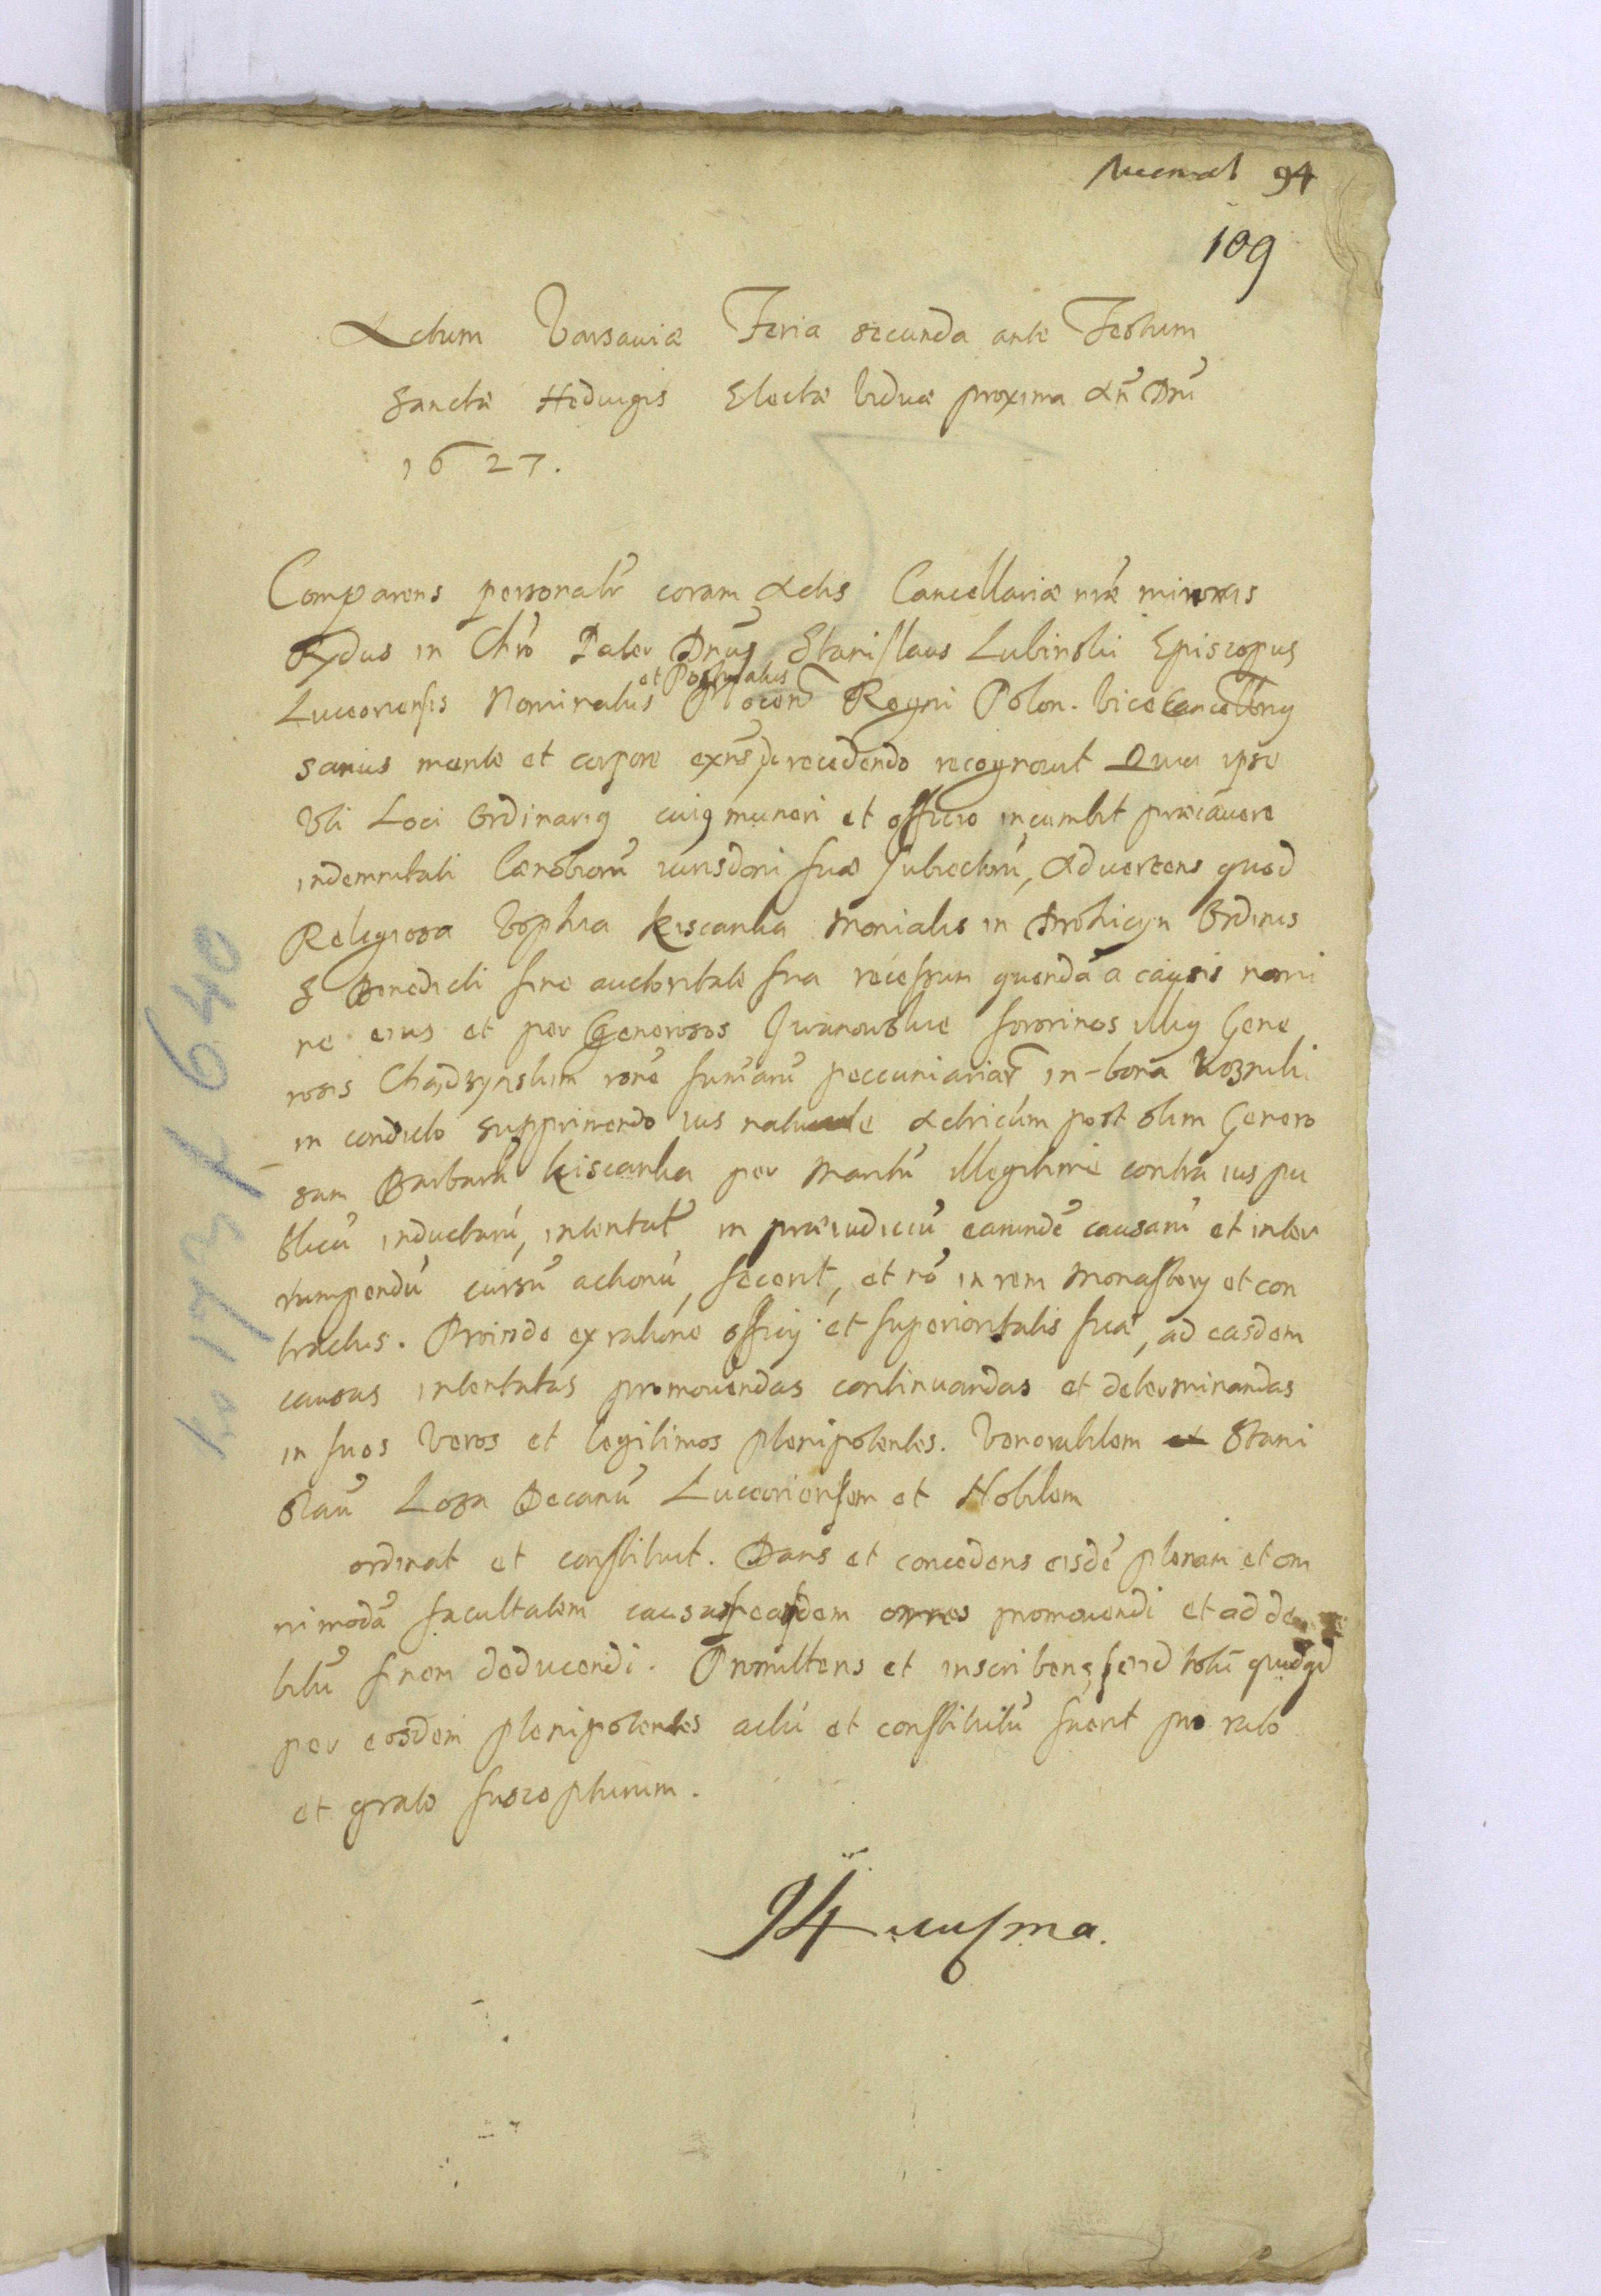 94
109
Actum Varsaviæ Feria secunda ante Festum
Sanctæ Hedvigis Electæ Viduæ proxima Añ Dñi
1627.
Comparens personalr̃ coram Actis Cancellariæ nr̃æ minoris
Rñdus in Chrõ Pater Dnũs Stanislaus Lubinski Episcopus
et Postulatus
Luceoriensis Nominatus Plocen̄ Regni Polon. Vicecancellarig
sanus mente et corpore exñs recedendo recognovit Quia ipse
Vti Loci Ordinarig cuig muneri et officio incumbit præcavere
indemnitati Cænobiorũ iurisdõni suæ subiectorũ, Advertens quod
Religiosa Zophia Kiscanka Monialis in Drohicyn Ordinis
S Benedicti sine auctoritate sua recessum quendã a causis nomi
ne eius et per Generosos Iwanowskie sororinos illig Gene
rosis Chądzynskim rõne sum̃arũ peccuniariar̃ in bona Kozuski
in condicto supprimendo ius naturale Actricũm post olim Genero
sam Barbarã Kiscanka per Maritũ illegitime contra ius pu
blicũ inductarũ, intentat̃ in præiudiciũ earundẽ causarũ et inter
rumpendũ cursũ actionũ, fecerit, et nõ in rem Monastery et con
tractus. Proinde ex ratione officy et superioritatis suæ, ad easdem
causas intentatas promovendas continuandas et determinandas
in suos Veros et legitimos plenipotentes. Venerabilem Stani
slaũ Loza Decanũ Luceoriensem et Nobilem
ordinat et constituit. Dans et concedens eisdẽ plenam et om
nimodã facultatem causas easdem omnes promovendi et ad de
bitũ finem deducendi. Promittens et inscribens se id totũ quidqd
per eosdem plenipotentes actũ et constitutũ fuerit pro rato
et grato suscepturum.
94
L. 1731 640